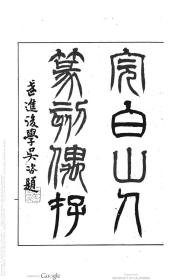 完白山人
篆刻偶存
武進後學吳咨題
Google